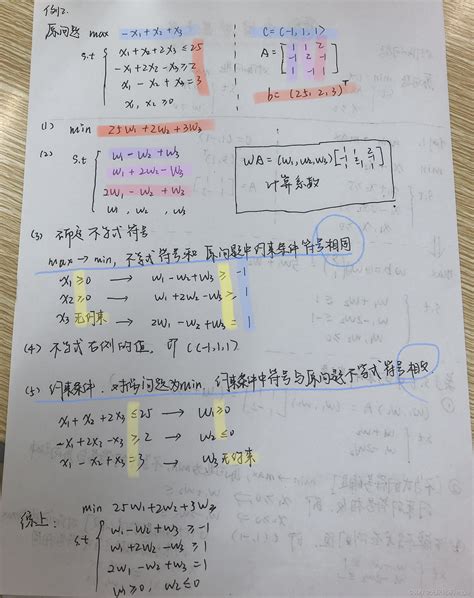 例2.
原问题 max -x₁+x₂+x₃ C=(-1,1,1)
s.t { x₁+x₂+2x₃≤25
-x₁+2x₂-x₃≥2
x₁-x₂+x₃=3
x₁,x₂≥0
A=[1 1 2
-1 2 -1
1 -1 1]
b=(25,2,3)ᵀ
(1) min 25w₁+2w₂+3w₃
(2) s.t { w₁-w₂+w₃
w₁+2w₂-w₃
2w₁-w₂+w₃
w₁, w₂, w₃
WA=(w₁,w₂,w₃)[1 1 2
-1 2 -1
1 -1 1]
计算系数
(3) 确定不等式符号
max→min, 不等式符号和原问题中约束条件符号相同
x₁≥0 → w₁-w₂+w₃≥-1
x₂≥0 → w₁+2w₂-w₃≥1
x₃无约束 → 2w₁-w₂+w₃=1
(4) 不等式右侧的值, 即C(-1,1,1)
(5) 约束条件. 对偶问题为min, 约束条件中符号与原问题不等式符号相反
x₁+x₂+2x₃≤25 → w₁≥0
-x₁+2x₂-x₃≥2 → w₂≤0
x₁-x₂+x₃=3 → w₃无约束
综上: min 25w₁+2w₂+3w₃
s.t { w₁-w₂+w₃≥-1
w₁+2w₂-w₃≥1
2w₁-w₂+w₃=1
w₁≥0, w₂≤0